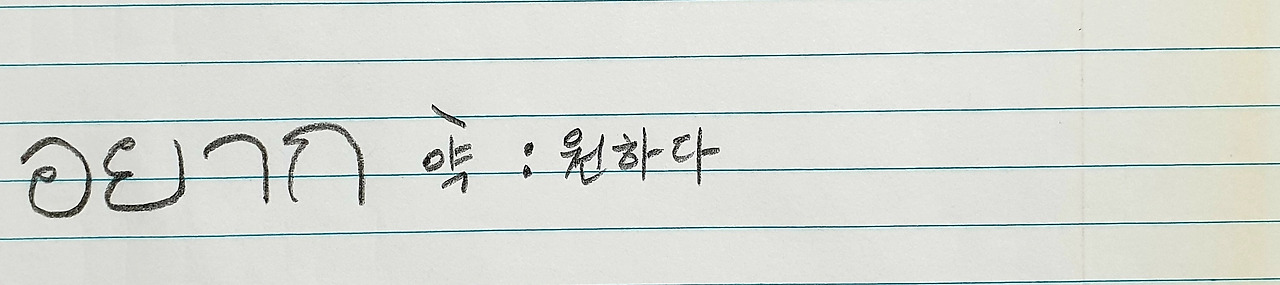 อยาก 야̀ㄱ : 원하다